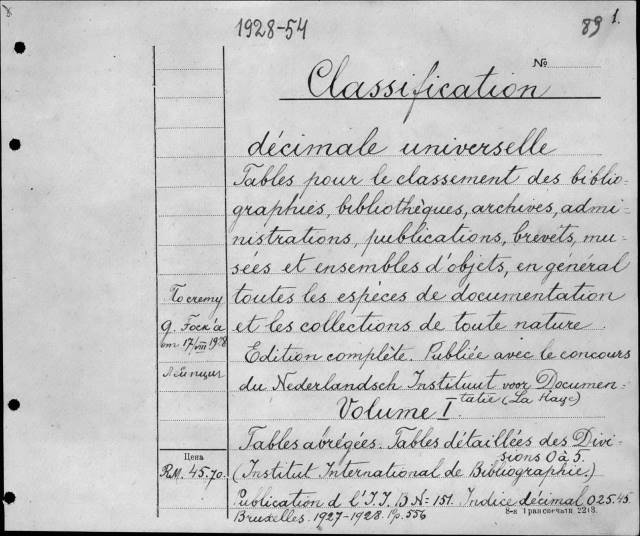 1928-54
89 1.
№
Classification
décimale universelle
Tables pour le classement des biblio-
graphies, bibliothèques, archives, admi-
nistrations, publications, brevets, mu-
sées et ensembles d'objets, en général
toutes les espèces de documentation
et les collections de toute nature.
Edition complète. Publiée avec le concours
du Nederlandsch Instituut voor Documen-
tatie (La Haye)
Volume I.
Tables abrégées. Tables détaillées des Divi-
sions 0 à 5.
(Institut International de Bibliographie.)
Publication d l'I.I.B N= 151. Indice décimal 025.45
Bruxelles. 1927-1928. Pp. 556
По счету
g. Fock'a
от 17/VIII 1928
Лейпциг
Цена
RM. 45.70.
8-я Транспечати 2213.